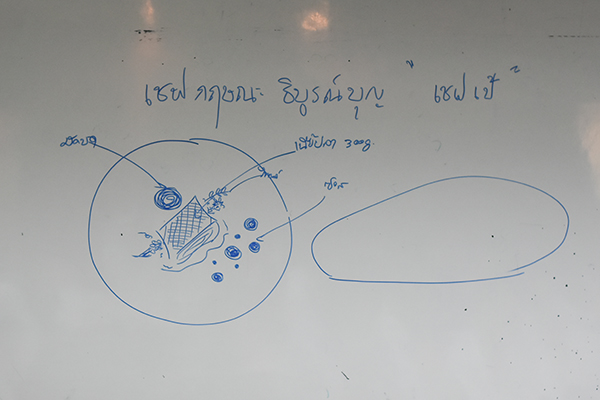 เชฟ กฤษณะ ธิบูรณ์บุญ " เชฟ เป้ "
เนื้อปลา 300g.
ซอส